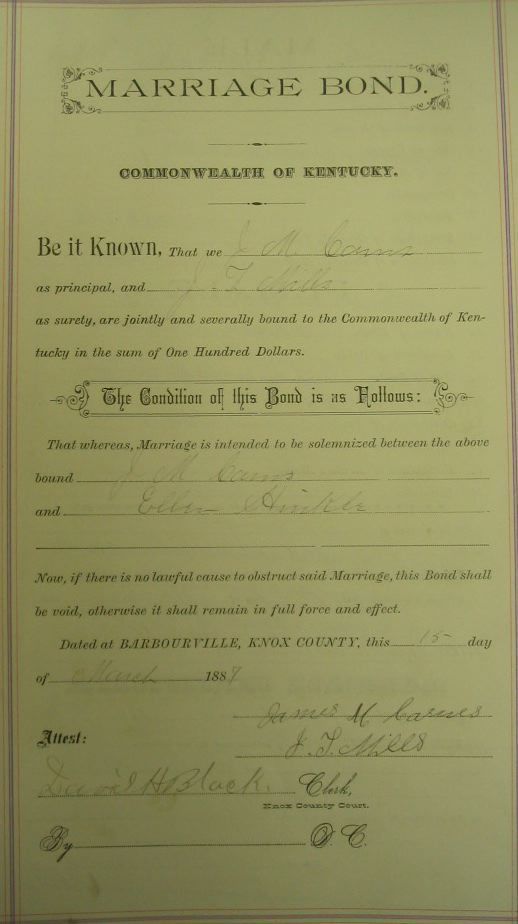 MARRIAGE BOND.
COMMONWEALTH OF KENTUCKY.
Be it Known, That we J M Carns
as principal, and J. T. Mills
as surety, are jointly and severally bound to the Commonwealth of Ken-
tucky in the sum of One Hundred Dollars.
The Condition of this Bond is as Follows:
That whereas, Marriage is intended to be solemnized between the above
bound J M Carns
and Ellen Hinkle
Now, if there is no lawful cause to obstruct said Marriage, this Bond shall
be void, otherwise it shall remain in full force and effect.
Dated at BARBOURVILLE, KNOX COUNTY, this 15 day
of March 1887
James M Carnes
Attest: J. T. Mills
David H Black. Clerk,
Knox County Court.
By D. C.